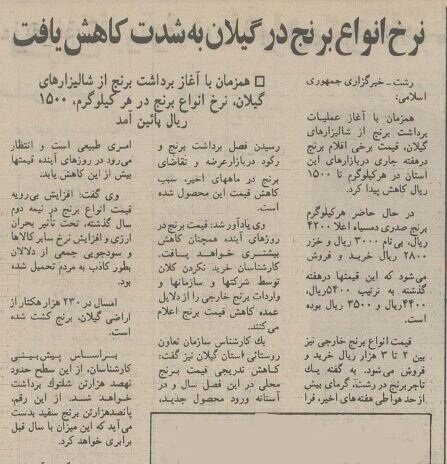 نرخ انواع برنج در گیلان به شدت کاهش یافت
□ همزمان با آغاز برداشت برنج از شالیزارهای
گیلان، نرخ انواع برنج در هر کیلوگرم، ۱۵۰۰
ریال پائین آمد
رشت ـ خبرگزاری جمهوری
اسلامی:
همزمان با آغاز عملیات
برداشت برنج از شالیزارهای
گیلان، قیمت برخی اقلام برنج
هفته جاری دربازارهای این
استان در هرکیلوگرم تا ۱۵۰۰
ریال کاهش پیدا کرد.
در حال حاضر هرکیلوگرم
برنج صدری دمسیاه اعلا ۴۲۰۰
ریال، بی‌نام ۳۰۰۰ ریال و خزر
۲۸۰۰ ریال خرید و فروش
می‌شود که این قیمتها درهفته
گذشته به ترتیب ۵۴۰۰ریال،
۴۴۰۰ریال و ۳۵۰۰ ریال بوده
است.
قیمت انواع برنج خارجی نیز
بین ۲ تا ۳ هزار ریال خرید و
فروش می‌شود. به گفته یك
تاجربرنج در رشت، گرمای بیش
ازحد هوا طی هفته‌های اخیر، فرا
رسیدن فصل برداشت برنج و
رکود دربازارعرضه و تقاضای
برنج در ماههای اخیر، سبب
کاهش قیمت این محصول شده
است.
وی یادآور شد: قیمت برنج در
روزهای آینده همچنان کاهش
بیشتری خواهد یافت.
کارشناسان خرید نکردن کلان
توسط شرکتها و سازمانها و
واردات برنج خارجی را ازدلایل
عمده کاهش قیمت برنج اعلام
می‌کنند.
یك کارشناس سازمان تعاون
روستائی استان گیلان نیز گفت:
کاهش تدریجی قیمت برنج
محلی در این فصل سال و در
آستانه ورود محصول جدید،
امری طبیعی است و انتظار
می‌رود در روزهای آینده قیمتها
بیش از این کاهش یابد.
وی گفت: افزایش بی‌رویه
قیمت انواع برنج در نیمه دوم
سال گذشته، تحت تأثیر بحران
ارزی و افزایش نرخ سایر کالاها
و سودجویی جمعی از دلالان
بطور کاذب به مردم تحمیل شده
بود.
امسال در ۲۳۰ هزار هکتار از
اراضی گیلان، برنج کشت شده
است.
براساس پیش‌بینی
کارشناسان، از این سطح حدود
نهصد هزارتن شلتوك برداشت
خواهد شد. از این رقم،
پانصدهزارتن برنج سفید بدست
می‌آید که این میزان با سال قبل
برابری خواهد کرد.